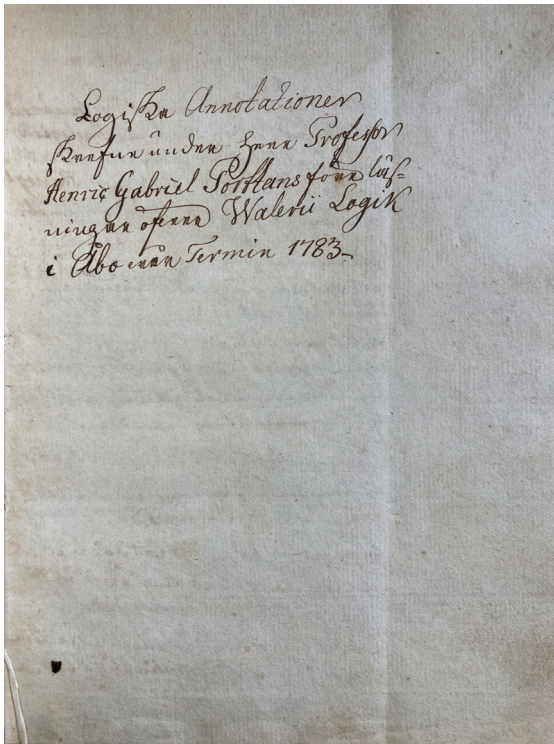 Logiska Annotationer
skrefne under Herr Professor
Henric Gabriel Porthans före läs=
ningar öfver Walerii Logik
i Åbo vårr Termin 1783